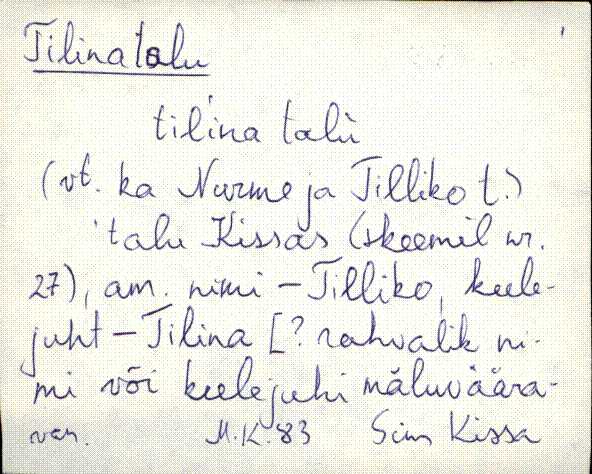 Tilinatalu
til̀ina talù
(vt. ka Nurme ja Tilliko t.)
'talu Kissas (skeemil nr.
27), am. nimi – Tilliko, keele-
juht – Tilina [? rahvalik ni-
mi või keelejuhi mäluväära-
M.K. 83 Sim Kissa